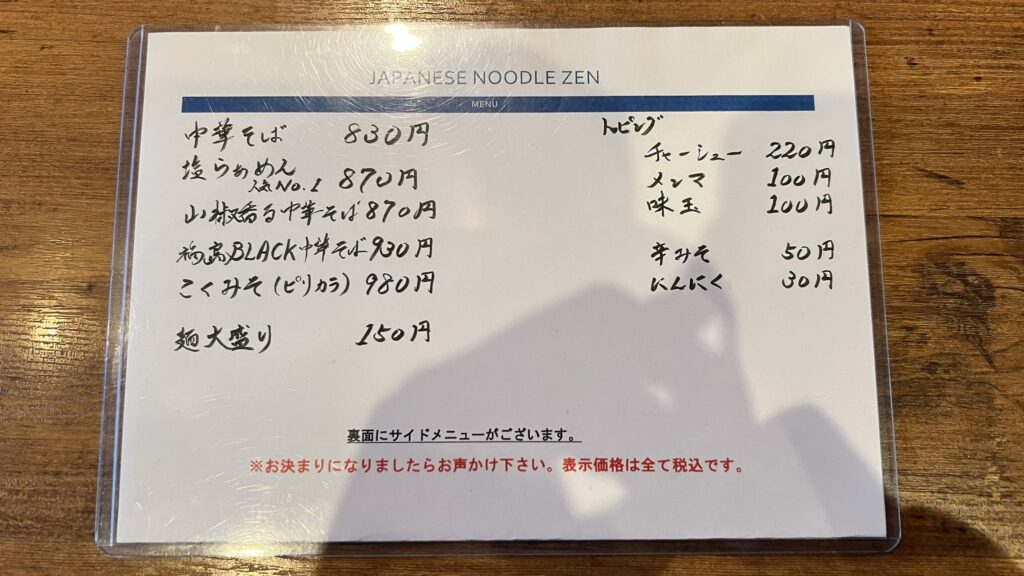 JAPANESE NOODLE ZEN
MENU
中華そば 830円
塩らぁめん
人気No.1 870円
山椒香る中華そば 870円
福島BLACK中華そば 930円
こくみそ(ピリカラ) 980円
麺大盛り 150円
トッピング
チャーシュー 220円
メンマ 100円
味玉 100円
辛みそ 50円
にんにく 30円
裏面にサイドメニューがございます。
※お決まりになりましたらお声かけ下さい。表示価格は全て税込です。